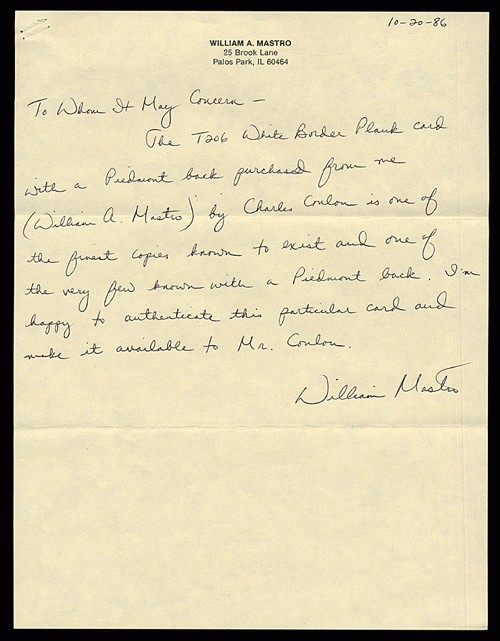 10-20-86
WILLIAM A. MASTRO
25 Brook Lane
Palos Park, IL 60464
To Whom It May Concern –
The T206 White Border Plank card
with a Piedmont back purchased from me
(William A. Mastro) by Charles Conlon is one of
the finest copies known to exist and one of
the very few known with a Piedmont back. I'm
happy to authenticate this particular card and
make it available to Mr. Conlon.
William Mastro